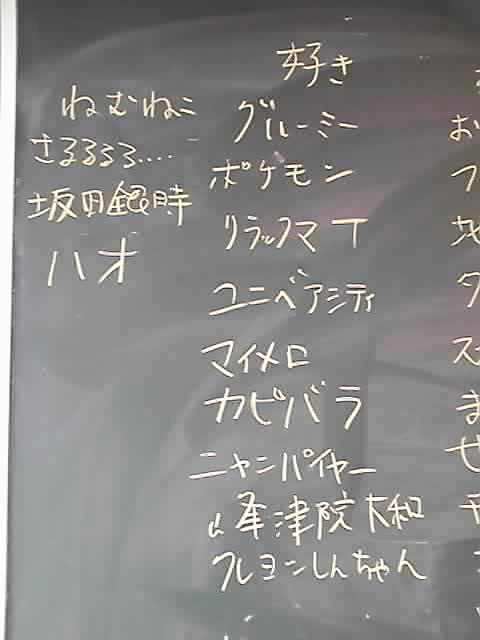 好き
ねむねこ
さるるるろ....
坂田銀時
ハオ
グルーミー
ポケモン
リラックマ T
ユニベアシティ
マイメロ
カピバラ
ニャンパイヤー
峯津院大和
クレヨンしんちゃん
お
フ
タ
ス
ま
せ